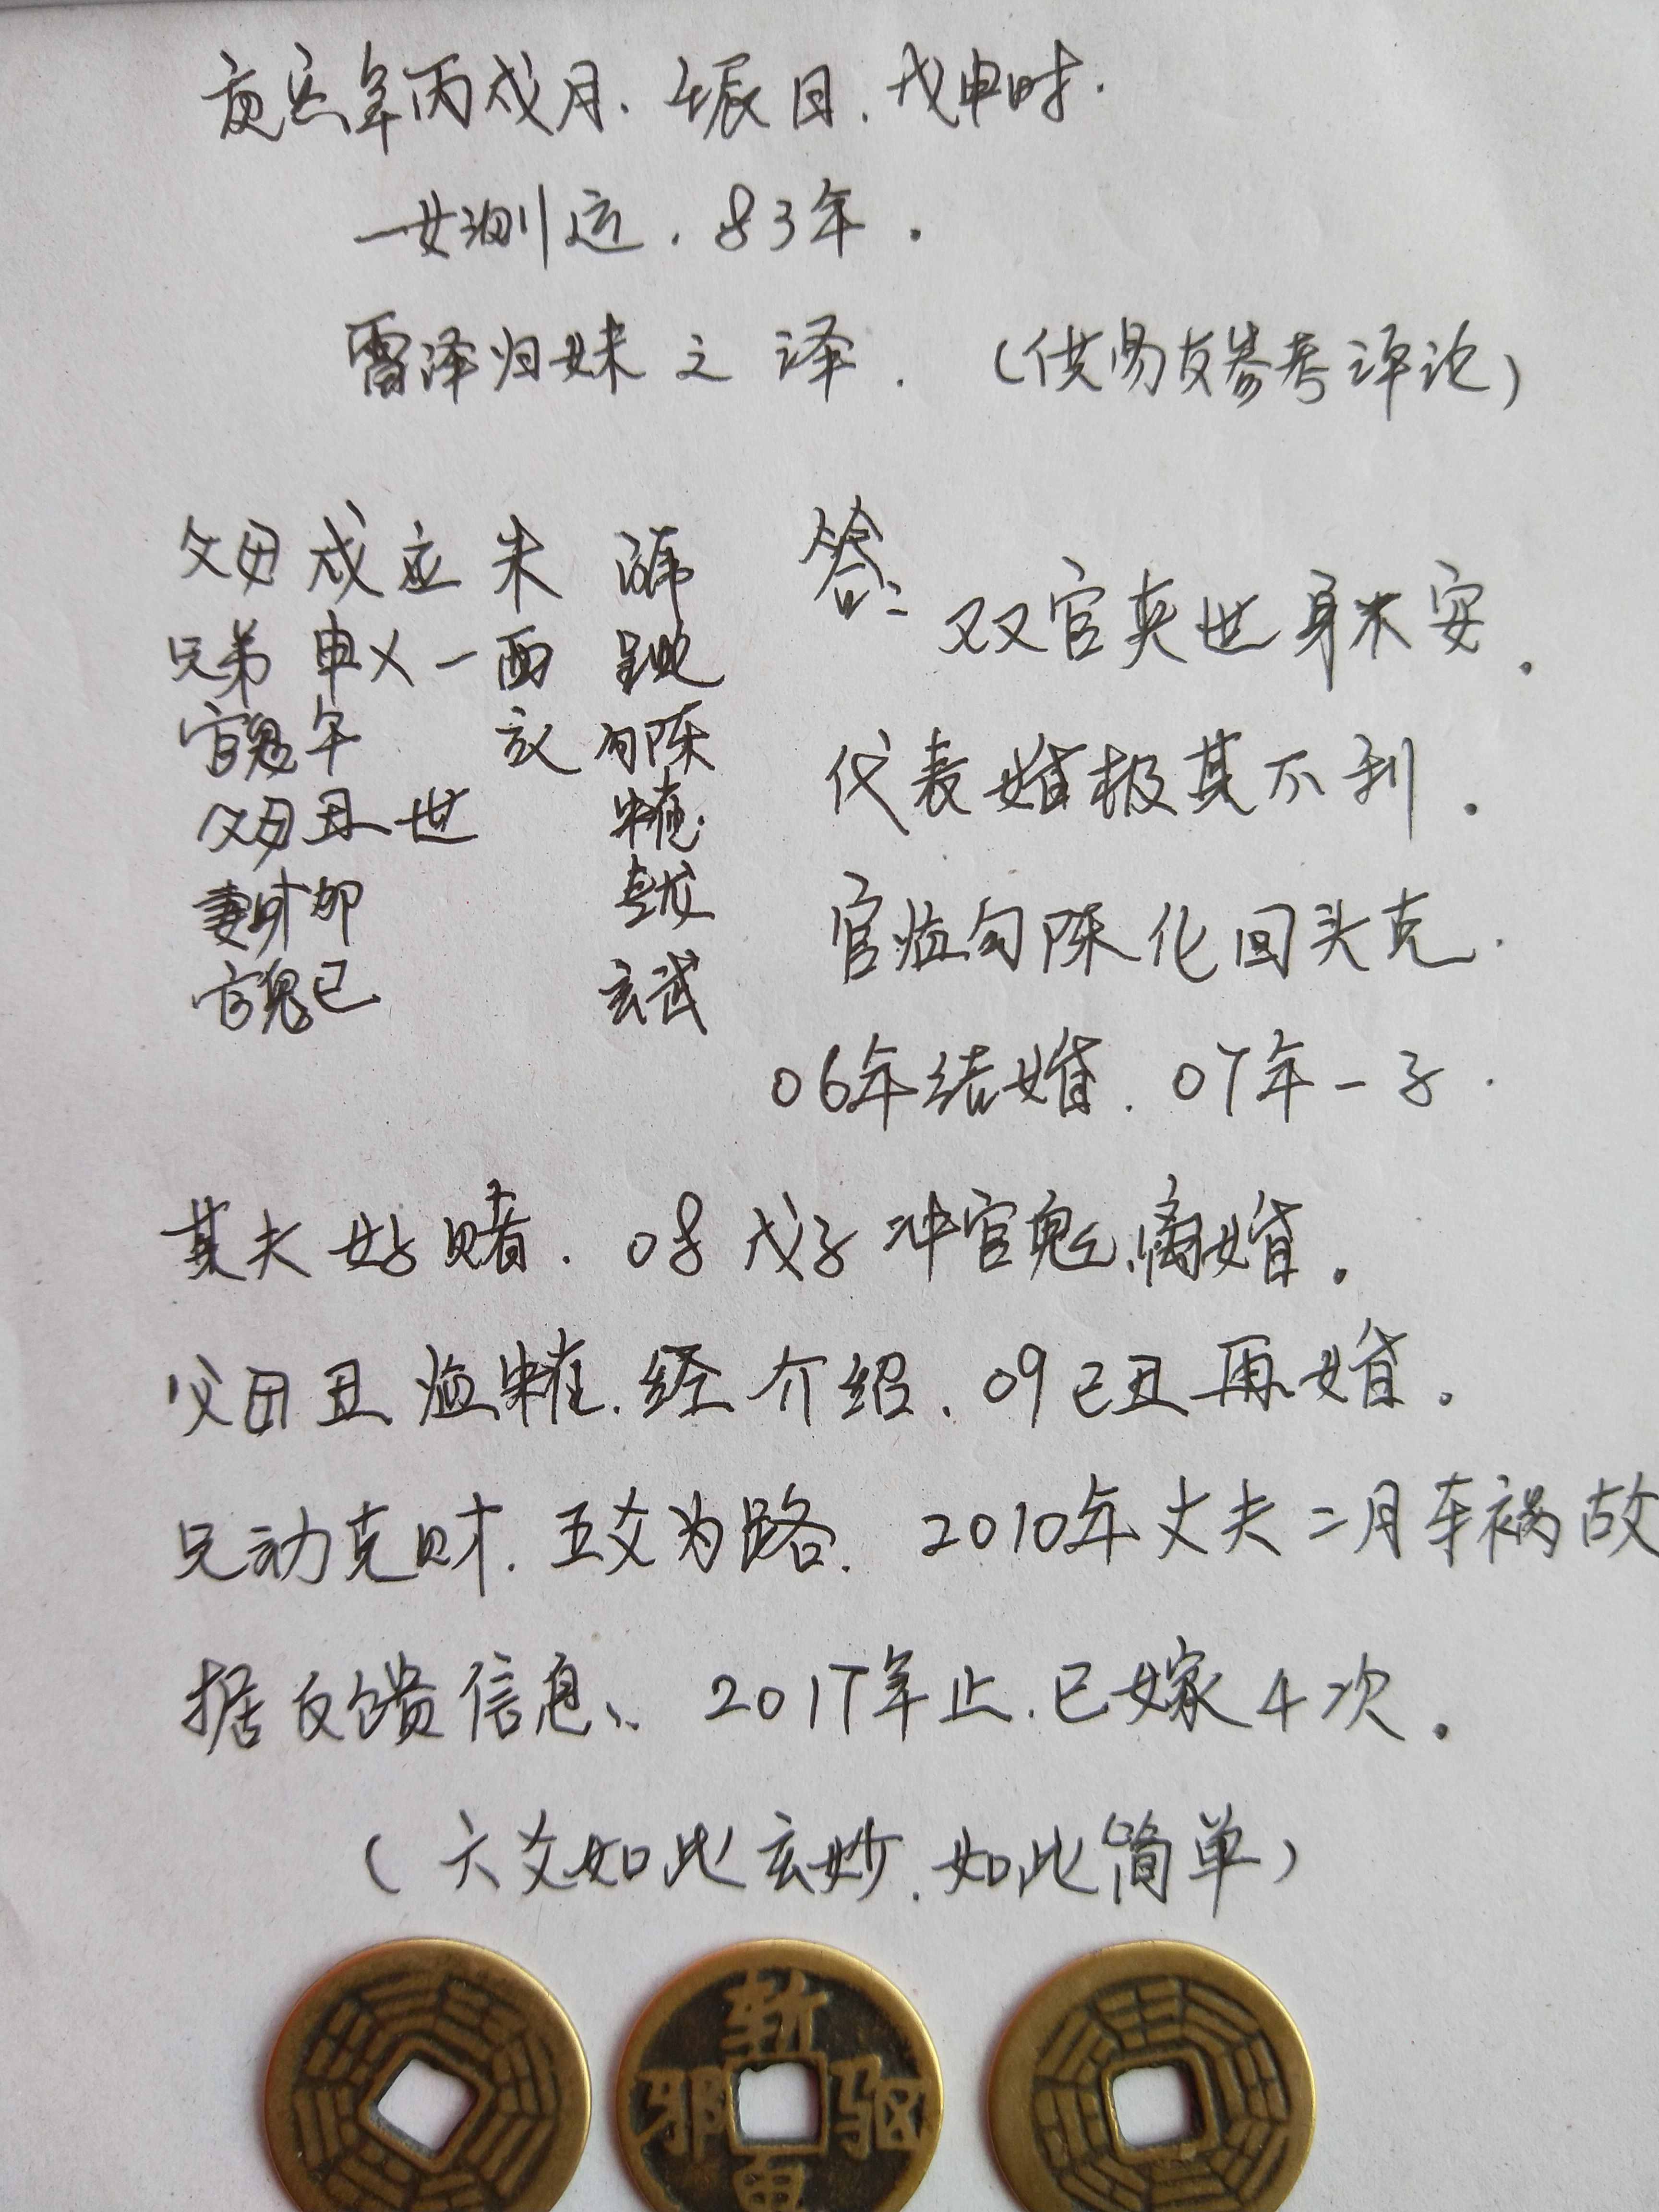 庚寅年丙戌月.壬辰日.戊申时.
一女测运.83年.
雷泽归妹之泽.(供易友参考评论)
父母戌应未
兄弟申乂一酉
官鬼午 亥 勾陈
父母丑一世
妻财卯
官鬼巳 玄武
答:双官夹世身不安.
代表婚极其不利.
官临勾陈化回头克.
06年结婚.07年一子.
其夫好赌.08戊子冲官鬼,离婚.
父母丑临朱雀.经介绍.09己丑再婚.
兄动克财.五爻为路.2010年丈夫二月车祸故
据反馈信息、2017年止.已嫁4次.
(六爻如此玄妙.如此简单)
斩
邪 驱